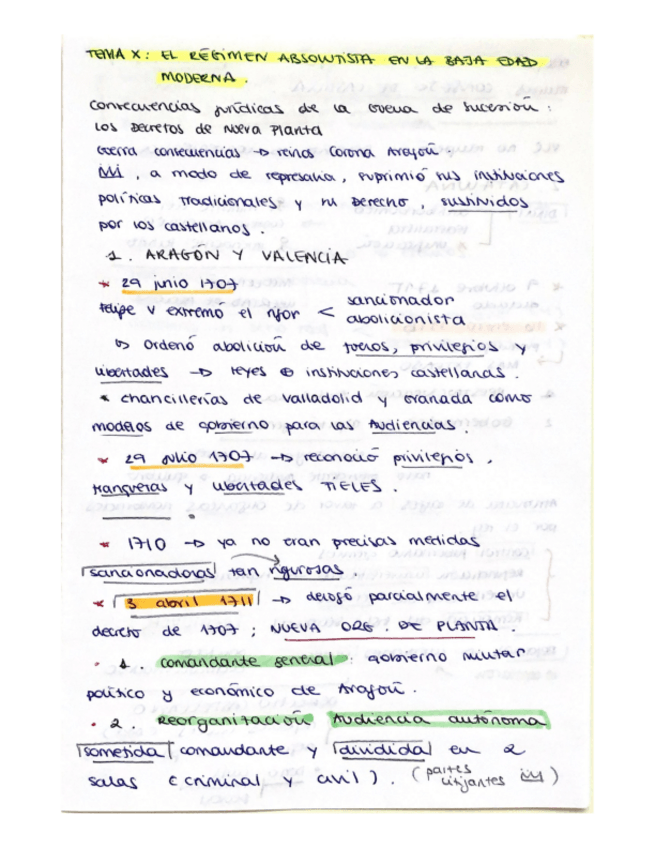 TEMA X: EL RÉGIMEN ABSOLUTISTA EN LA BAJA EDAD
MODERNA.
Consecuencias jurídicas de la Guerra de Sucesión:
los Decretos de Nueva Planta
Guerra consecuencias → reinos Corona Aragón.
, a modo de represalia, suprimió sus instituciones
políticas tradicionales y su Derecho, sustituidos
por los castellanos.
1. ARAGÓN Y VALENCIA
* 29 junio 1707
Felipe V extremó el rigor < sancionador
abolicionista
↳ Ordenó abolición de fueros, privilegios y
libertades → leyes e instituciones castellanas.
* chancillerías de Valladolid y Granada como
modelos de gobierno para las Audiencias.
* 29 julio 1707 → reconoció privilegios,
franquezas y libertades FIELES.
* 1710 → ya no eran precisas medidas
sancionadoras tan rigurosas.
* 3 abril 1711 → derogó parcialmente el
decreto de 1707; NUEVA ORG. DE PLANTA.
· 1. comandante general: gobierno militar
político y económico de Aragón.
· 2. Reorganización Audiencia autónoma
sometida comandante y dividida en 2
salas (criminal y civil). (partes
litigantes )